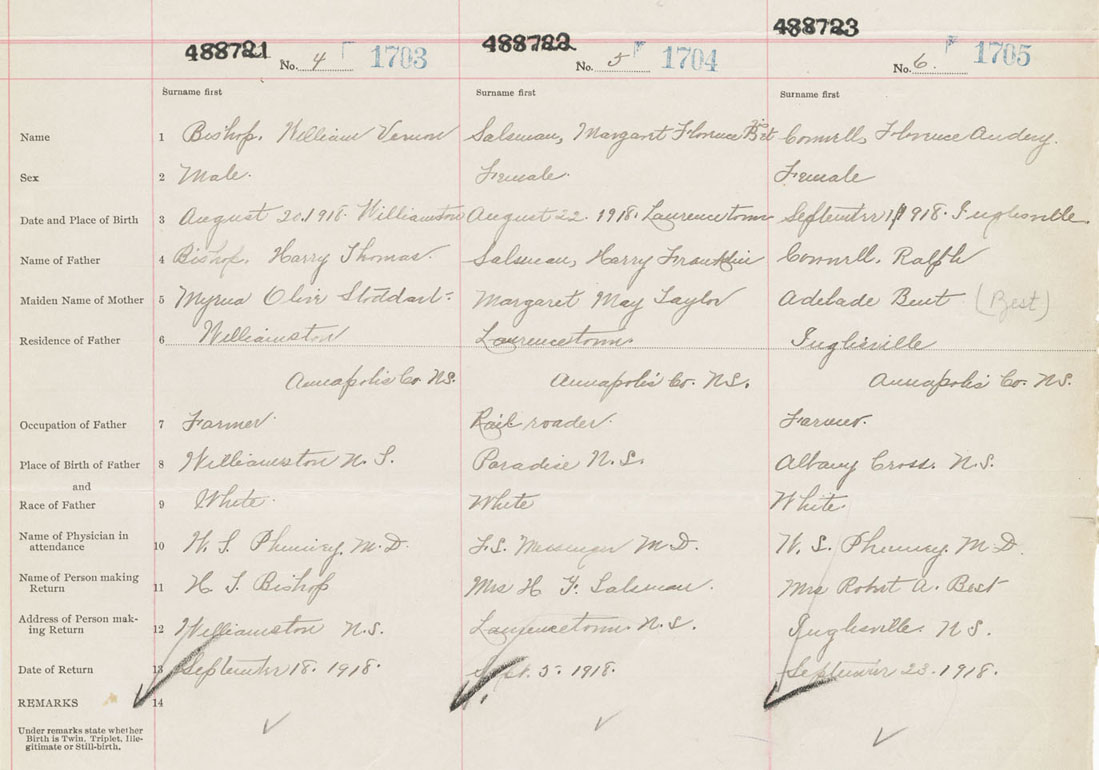 488721 488722 488723
No. 4 1703 No. 5 1704 No. 6. 1705
Surname first Surname first Surname first
Name 1 Bishop, William Vernon Salsman, Margaret Florence Connell, Florence Audery.
Sex 2 Male. Female. Female
Date and Place of Birth 3 August 20. 1918. Williamston August 22. 1918. Laurencetown September 1918. Inglisville.
Name of Father 4 Bishop, Harry Thomas. Salsman, Harry Franklin Connell, Ralph
Maiden Name of Mother 5 Myrna Olive Stoddart- Margaret May Taylor Adelade Bent (Best)
Residence of Father 6 Williamston Laurencetown Inglisville
Annapolis Co. N.S. Annapolis Co. N.S. Annapolis Co. N.S.
Occupation of Father 7 Farmer. Rail roader. Farmer.
Place of Birth of Father 8 Williamston N.S. Paradise N.S. Albany Cross. N.S.
and
Race of Father 9 White. White White.
Name of Physician in
attendance 10 M.D. M.D. M.D.
Name of Person making
Return 11 H. T. Bishop Mrs H. F. Salsman. Mrs Robert A. Best
Address of Person mak-
ing Return 12 Williamston N.S. Laurencetown N.S. Inglisville. N.S.
Date of Return 13 September 18. 1918. Sept. 5. 1918. September 23. 1918.
REMARKS 14
Under remarks state whether
Birth is Twin, Triplet, Ille-
gitimate or Still-birth.